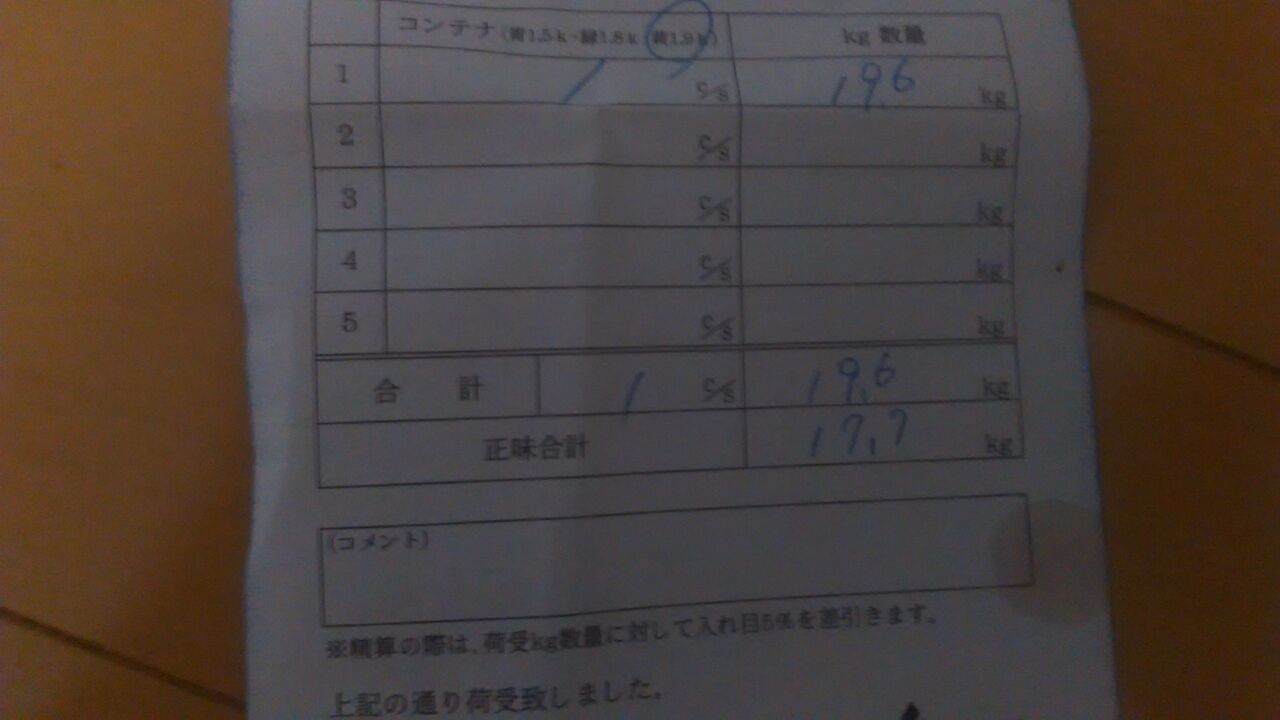 コンテナ(青1.5k・緑1.8k・黄1.9k) kg 数量
1 1 c/s 19.6 kg
2 c/s kg
3 c/s kg
4 c/s kg
5 c/s kg
合計 1 c/s 19.6 kg
正味合計 17.7 kg
(コメント)
※精算の際は、荷受kg数量に対して入れ目5%を差引きます。
上記の通り荷受致しました。